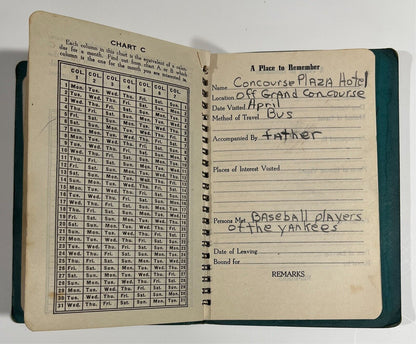 CHART C
Each column in this chart is the equivalent of a calen-
dar for a month. Find out from chart A. or B. which
column is the one for the month you are interested in.
COL. COL. COL. COL. COL. COL. COL.
1 2 3 4 5 6 7
1 Mon. Tue. Wed. Thu. Fri. Sat. Sun.
2 Tue. Wed. Thu. Fri. Sat. Sun. Mon.
3 Wed. Thu. Fri. Sat. Sun. Mon. Tue.
4 Thu. Fri. Sat. Sun. Mon. Tue. Wed.
5 Fri. Sat. Sun. Mon. Tue. Wed. Thu.
6 Sat. Sun. Mon. Tue. Wed. Thu. Fri.
7 Sun. Mon. Tue. Wed. Thu. Fri. Sat.
8 Mon. Tue. Wed. Thu. Fri. Sat. Sun.
9 Tue. Wed. Thu. Fri. Sat. Sun. Mon.
10 Wed. Thu. Fri. Sat. Sun. Mon. Tue.
11 Thu. Fri. Sat. Sun. Mon. Tue. Wed.
12 Fri. Sat. Sun. Mon. Tue. Wed. Thu.
13 Sat. Sun. Mon. Tue. Wed. Thu. Fri.
14 Sun. Mon. Tue. Wed. Thu. Fri. Sat.
15 Mon. Tue. Wed. Thu. Fri. Sat. Sun.
16 Tue. Wed. Thu. Fri. Sat. Sun. Mon.
17 Wed. Thu. Fri. Sat. Sun. Mon. Tue.
18 Thu. Fri. Sat. Sun. Mon. Tue. Wed.
19 Fri. Sat. Sun. Mon. Tue. Wed. Thu.
20 Sat. Sun. Mon. Tue. Wed. Thu. Fri.
21 Sun. Mon. Tue. Wed. Thu. Fri. Sat.
22 Mon. Tue. Wed. Thu. Fri. Sat. Sun.
23 Tue. Wed. Thu. Fri. Sat. Sun. Mon.
24 Wed. Thu. Fri. Sat. Sun. Mon. Tue.
25 Thu. Fri. Sat. Sun. Mon. Tue. Wed.
26 Fri. Sat. Sun. Mon. Tue. Wed. Thu.
27 Sat. Sun. Mon. Tue. Wed. Thu. Fri.
28 Sun. Mon. Tue. Wed. Thu. Fri. Sat.
29 Mon. Tue. Wed. Thu. Fri. Sat. Sun.
30 Tue. Wed. Thu. Fri. Sat. Sun. Mon.
31 Wed. Thu. Fri. Sat. Sun. Mon. Tue.
A Place to Remember
Name Concourse Plaza Hotel
Location Off Grand Concourse
Date Visited April
Method of Travel Bus
Accompanied By Father
Places of Interest Visited
Persons Met Baseball players
of the yankees
Date of Leaving
Bound for
REMARKS